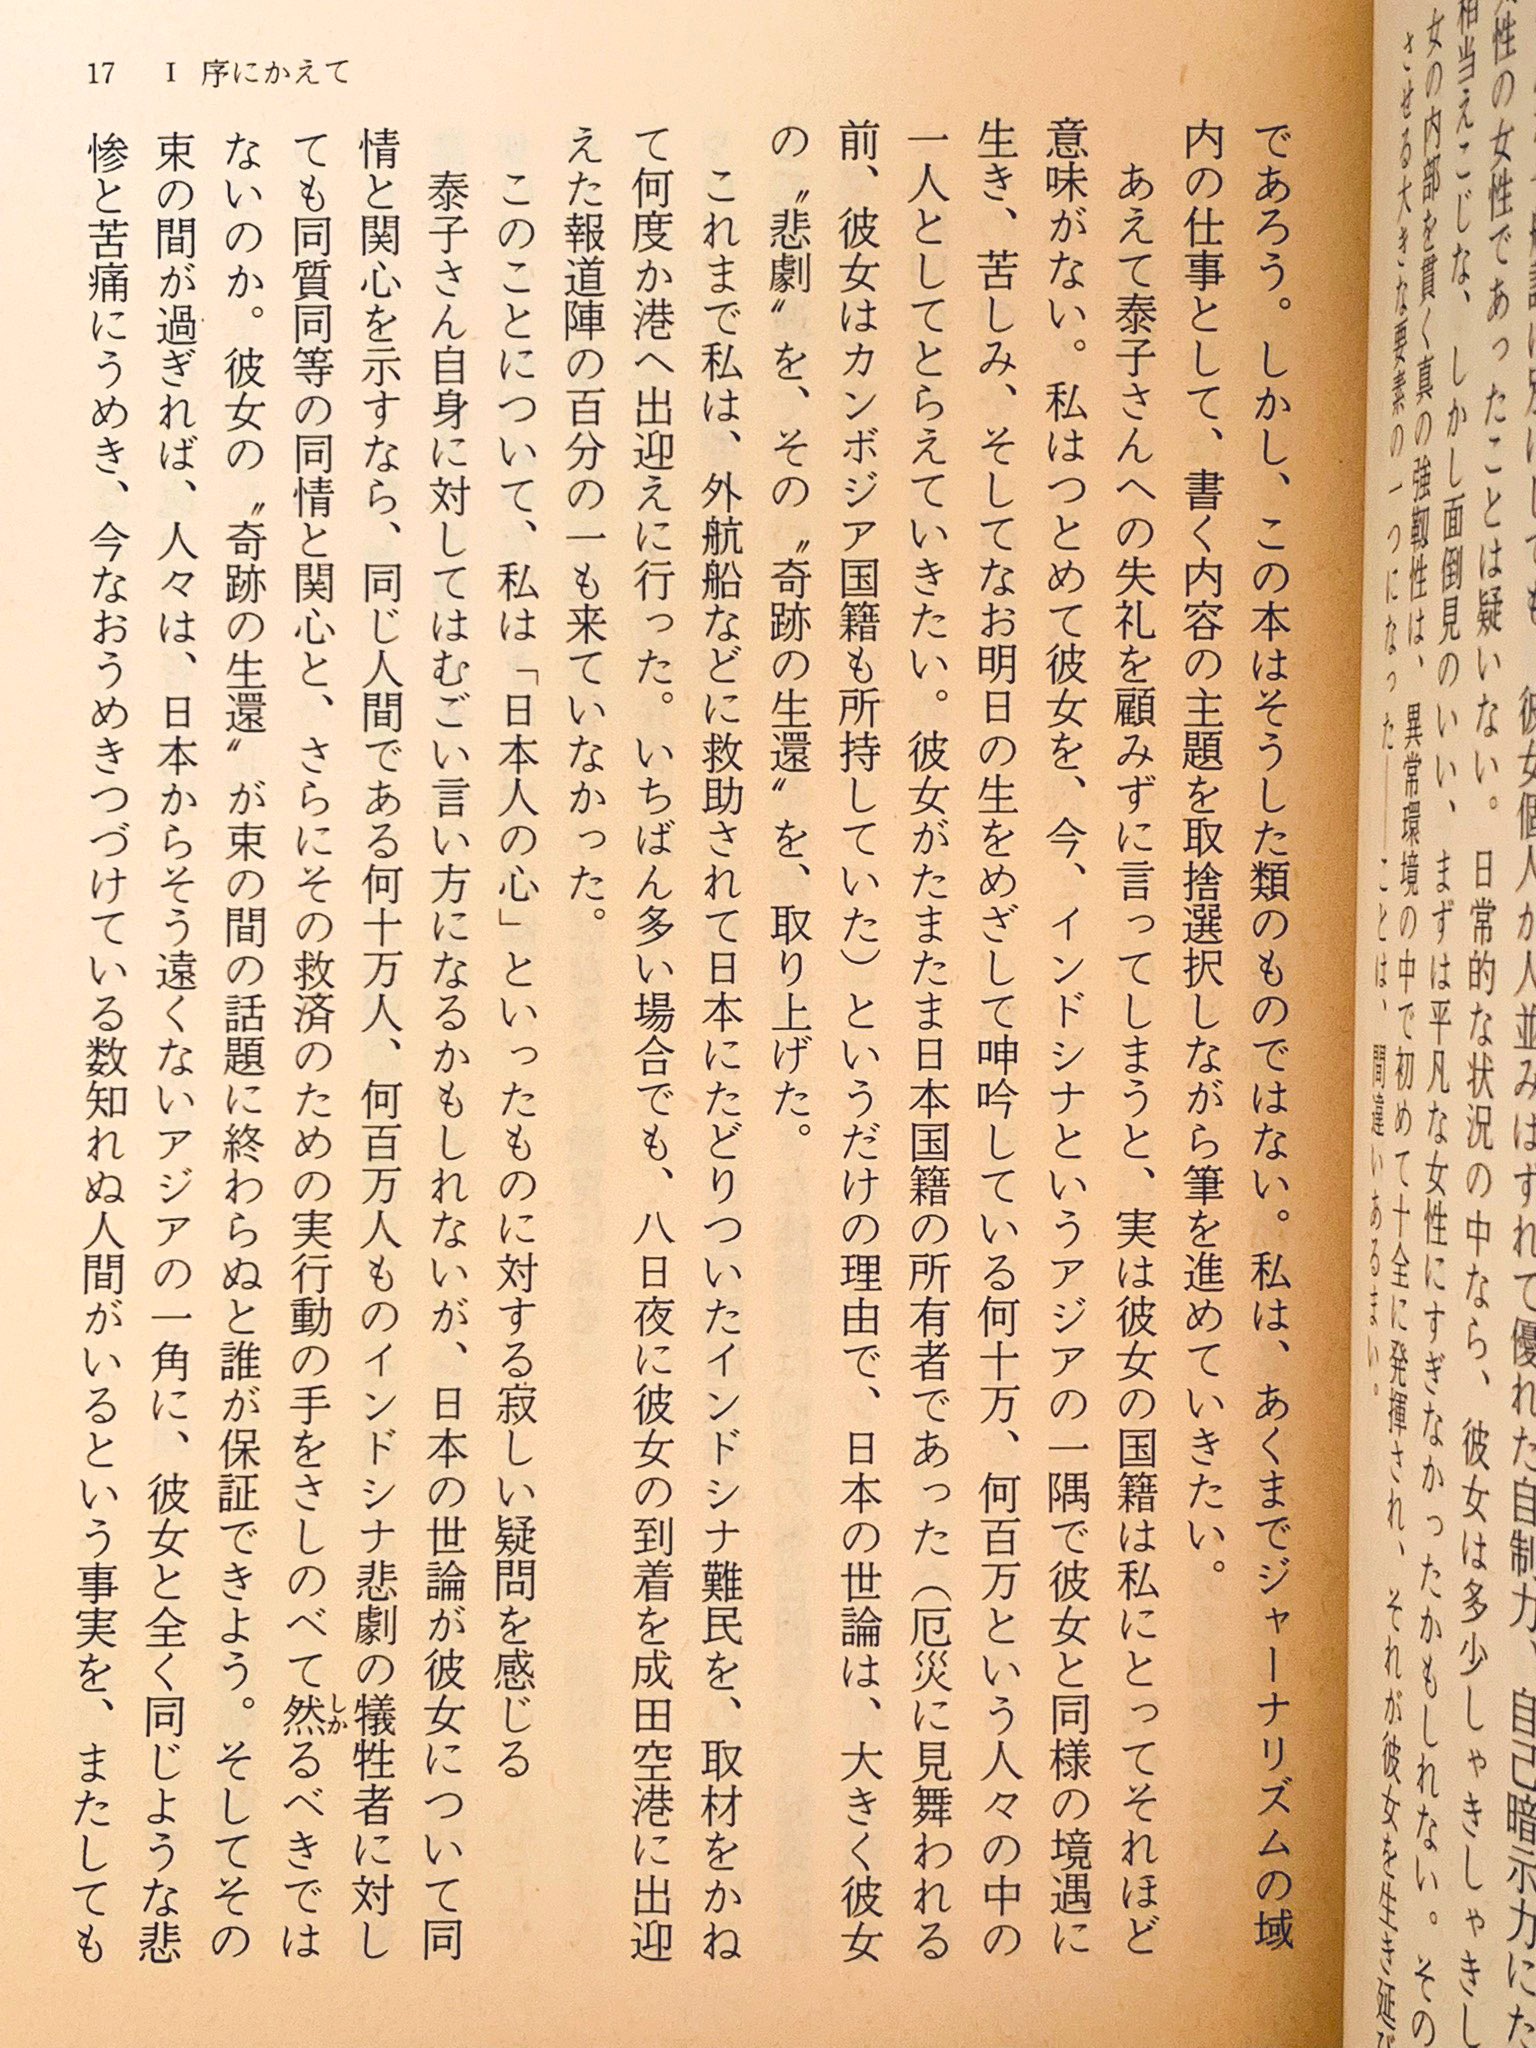 17 I 序にかえて
は別にしても、彼女個人が人並みはずれて優れた自制力、自己暗示力にた
性の女性であったことは疑いない。日常的な状況の中なら、彼女は多少しゃきしゃきし
相当えこじな、しかし面倒見のいい、まずは平凡な女性にすぎなかったかもしれない。その
女の内部を貫く真の強靱性は、異常環境の中で初めて十全に発揮され、それが彼女を生き延び
させる大きな要素の一つになった――ことは、間違いあるまい。
であろう。しかし、この本はそうした類のものではない。私は、あくまでジャーナリズムの域
内の仕事として、書く内容の主題を取捨選択しながら筆を進めていきたい。
あえて泰子さんへの失礼を顧みずに言ってしまうと、実は彼女の国籍は私にとってそれほど
意味がない。私はつとめて彼女を、今、インドシナというアジアの一隅で彼女と同様の境遇に
生き、苦しみ、そしてなお明日の生をめざして呻吟している何十万、何百万という人々の中の
一人としてとらえていきたい。彼女がたまたま日本国籍の所有者であった（厄災に見舞われる
前、彼女はカンボジア国籍も所持していた）というだけの理由で、日本の世論は、大きく彼女
の〝悲劇〟を、その〝奇跡の生還〟を、取り上げた。
これまで私は、外航船などに救助されて日本にたどりついたインドシナ難民を、取材をかね
て何度か港へ出迎えに行った。いちばん多い場合でも、八日夜に彼女の到着を成田空港に出迎
えた報道陣の百分の一も来ていなかった。
このことについて、私は「日本人の心」といったものに対する寂しい疑問を感じる
泰子さん自身に対してはむごい言い方になるかもしれないが、日本の世論が彼女について同
情と関心を示すなら、同じ人間である何十万人、何百万人ものインドシナ悲劇の犠牲者に対し
ても同質同等の同情と関心と、さらにその救済のための実行動の手をさしのべて然しかるべきでは
ないのか。彼女の〝奇跡の生還〟が束の間の話題に終わらぬと誰が保証できよう。そしてその
束の間が過ぎれば、人々は、日本からそう遠くないアジアの一角に、彼女と全く同じような悲
惨と苦痛にうめき、今なおうめきつづけている数知れぬ人間がいるという事実を、またしても